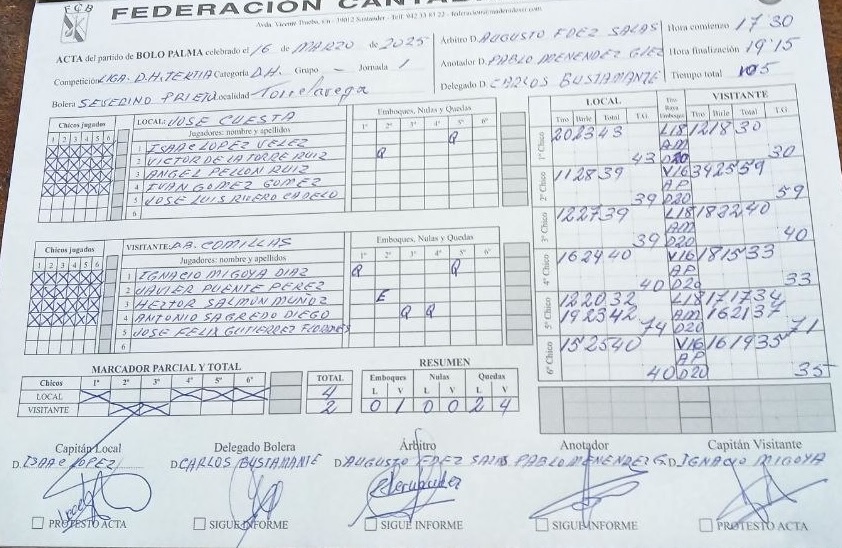 FCB
FEDERACIÓN CAN
Avda. Vicente Trueba, s/n - 39012 Santander - Telf. 942 33 87 22 -
ACTA del partido de BOLO PALMA celebrado el 16 de MARZO de 2025
Árbitro D. AUGUSTO FDEZ SALAS
Hora comienzo 17'30
Competición LIGA. D.H. TERTIA Categoría D.H. Grupo — Jornada 1
Anotador D. PABLO MENENDEZ GLEZ
Hora finalización 19'15
Bolera SEVERINO PRIETO Localidad Torrelavega
Delegado D. CARLOS BUSTAMANTE
Tiempo total 105
Chicos jugados
1 2 3 4 5 6
LOCAL: JOSE CUESTA
Jugadores: nombre y apellidos
Emboques, Nulas y Quedas
1º 2º 3º 4º 5º 6º
1 ISAAC LOPEZ VELEZ Q
2 VICTOR DE LA TORRE RUIZ Q
3 ANGEL PELLON RUIZ
4 IVAN GOMEZ GOMEZ
5 JOSE LUIS RIVERO CADELO
6
Chicos jugados
1 2 3 4 5 6
VISITANTE: P.B. COMILLAS
Jugadores: nombre y apellidos
Emboques, Nulas y Quedas
1º 2º 3º 4º 5º 6º
1 IGNACIO MIGOYA DIAZ Q Q
2 JAVIER PUENTE PEREZ
3 HECTOR SALMON MUÑOZ E
4 ANTONIO SAGREDO DIEGO Q Q
5 JOSE FELIX GUTIERREZ
6
LOCAL VISITANTE
Tiro Birle Total T.G. Tiro Raya Emboque Tiro Birle Total T.G.
1º Chico 20 23 43 L18 12 18 30
AM
43 D20 30
2º Chico 11 28 39 V16 34 25 59
AP
39 D20 59
3º Chico 12 27 39 L18 18 22 40
AM
39 D20 40
4º Chico 16 24 40 V16 18 15 33
AP
40 D20 33
5º Chico 12 20 32 L18 17 17 34
19 23 42 AM 16 21 37
74 D20 71
6º Chico 15 25 40 V16 16 19 35
AP
40 D20 35
MARCADOR PARCIAL Y TOTAL
Chicos 1º 2º 3º 4º 5º 6º TOTAL
LOCAL 4
VISITANTE 2
RESUMEN
Emboques Nulas Quedas
L V L V L V
0 1 0 0 2 4
Capitán Local Delegado Bolera Árbitro Anotador Capitán Visitante
D. ISAAC LOPEZ D. CARLOS BUSTAMANTE D. AUGUSTO FDEZ SALAS PABLO MENENDEZ G. D. IGNACIO MIGOYA
PROTESTO ACTA SIGUE INFORME SIGUE INFORME SIGUE INFORME PROTESTO ACTA